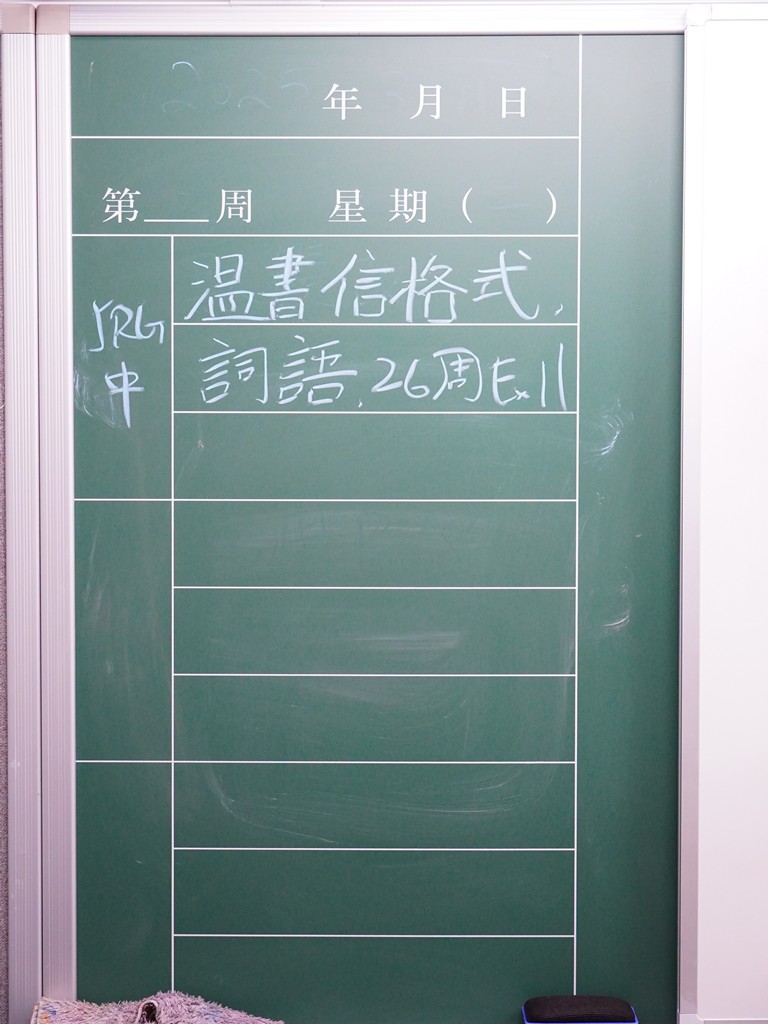 年 月 日
第___周 星期( )
5RG 温書信格式,
中 詞語, 26周Ex11